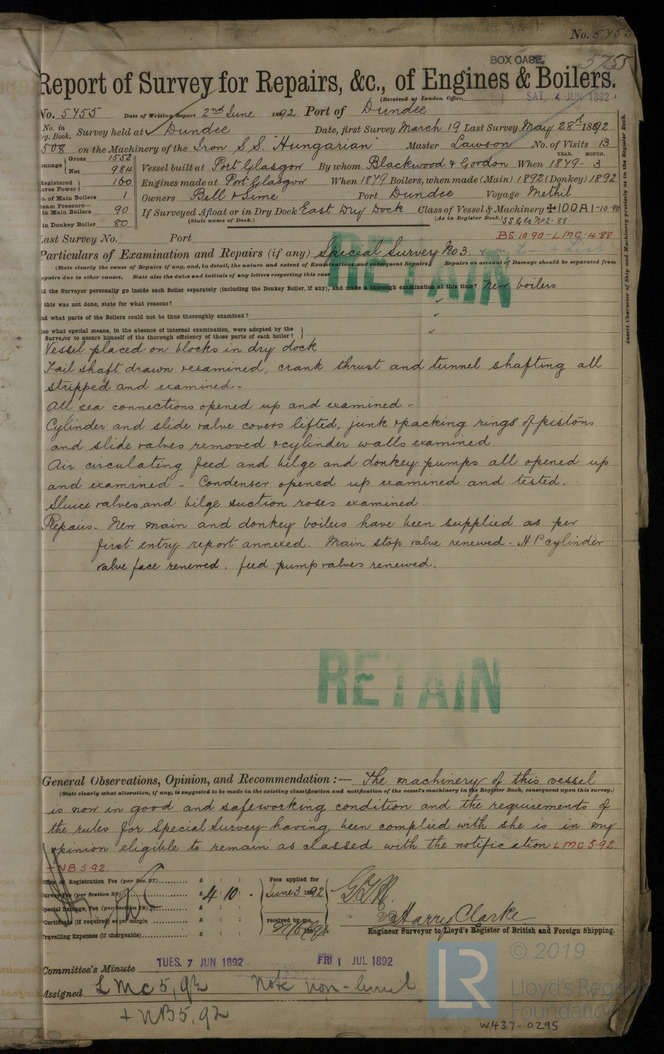 No. 5755
BOX CASE 5755
Report of Survey for Repairs, &c., of Engines & Boilers.
(Received at London Office, SAT. 4 JUN 1892)
No. 5755 Date of Writing Report 2nd June 1892 Port of Dundee
No. in Survey held at Dundee Date, first Survey March 19 Last Survey May 28th 1892
g. Book.
508 on the Machinery of the Iron S.S. Hungarian Master Lawson No. of Visits 13
Gross 1552
Net 984
Vessel built at Port Glasgow By whom Blackwood & Gordon When 1879-3
YEAR. MONTH.
Registered Horse Power 160 Engines made at Port Glasgow When 1879 Boilers, when made (Main) 1892 (Donkey) 1892
of Main Boilers 1 Owners Bell & Sime Port Dundee Voyage Methil
in Main Boilers 90 If Surveyed Afloat or in Dry Dock East Dry Dock Class of Vessel & Machinery ✠100A1-10-90
(State name of Dock.) (As in Register Book)
in Donkey Boiler 80
Last Survey No. Port BS 10.90-LMC-4.88
Particulars of Examination and Repairs (if any) Special Survey No 3.
(State clearly the cause of Repairs if any, and, in detail, the nature and extent of Examinations and subsequent Repairs) Repairs on account of Damage should be separated from
repairs due to other causes. State also the dates and initials of any letters respecting this case
Did the Surveyor personally go inside each Boiler separately (including the Donkey Boiler, if any), and make a thorough examination at this time? New boilers
this was not done, state for what reasons? "
And what parts of the Boilers could not be thoroughly examined? "
so what special means, in the absence of internal examination, were adopted by the
Surveyor to assure himself of the thorough efficiency of those parts of each boiler? "
RETAIN
Vessel placed on blocks in dry dock
Tail shaft drawn & examined, crank thrust and tunnel shafting all
stripped and examined.
All sea connections opened up and examined -
Cylinder and slide valve covers lifted, junk & packing rings of pistons
and slide valves removed & cylinder walls examined
Air circulating feed and bilge and donkey pumps all opened up
and examined - Condenser opened up examined and tested.
Sluice valves and bilge suction roses examined
Repairs. New main and donkey boilers have been supplied as per
first entry report annexed. Main stop valve renewed. H P cylinder
valve face renewed. feed pump valves renewed.
RETAIN
General Observations, Opinion, and Recommendation :— The machinery of this vessel
(State clearly what alteration, if any, is suggested to be made in the existing classification and notification of the vessel's machinery in the Register Book, consequent upon this survey.)
is now in good and safe working condition and the requirements of
the rules for Special Survey having been complied with she is in my
opinion eligible to remain as classed with the notification LMC 5.92
+ NB 5.92.
Office or Registration Fee (per Sec. 27) £ : : Fees applied for
Survey Fee (per Section 28) £ 4 : 10 : June 3 1892
Special Damage Fee (per Section 28) £ : :
Certificate (if required) as per margin £ : : received by me,
Travelling Expenses (if chargeable) £ : :
Harry Clarke
Engineer Surveyor to Lloyd's Register of British and Foreign Shipping.
Committee's Minute TUES. 7 JUN 1892 FRI 1 JUL 1892
Assigned LMC 5,92 Note non-
+ NB 5,92
© 2019
LR
Lloyd's Register
Foundation
W437-0295
Insert Character of Ship and Machinery precisely as in the Register Book.